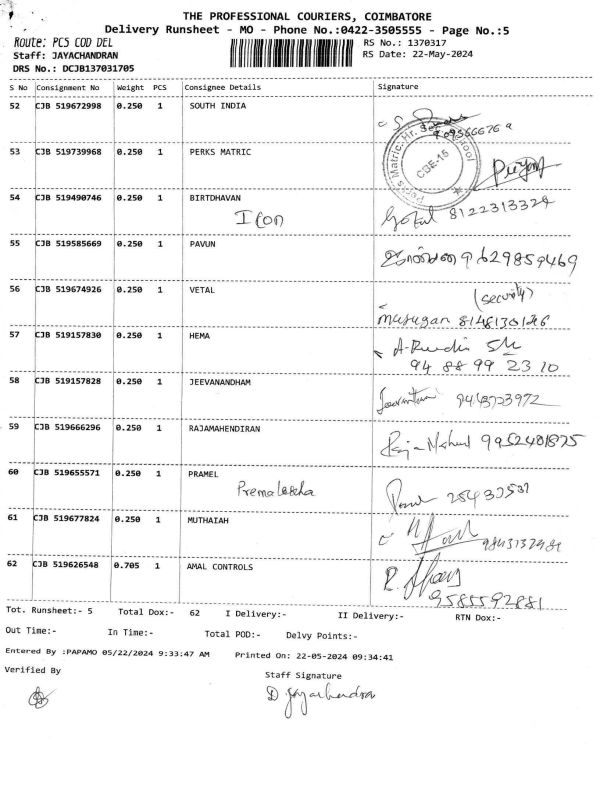 THE PROFESSIONAL COURIERS, COIMBATORE
Delivery Runsheet - MO - Phone No.:0422-3505555 - Page No.:5
Route: PCS COD DEL
RS No.: 1370317
Staff: JAYACHANDRAN
RS Date: 22-May-2024
DRS No.: DCJB137031705
S No Consignment No Weight PCS Consignee Details Signature
52 CJB 519672998 0.250 1 SOUTH INDIA
53 CJB 519739968 0.250 1 PERKS MATRIC
Perks Matric. Hr. Sec. School
CBE-15
54 CJB 519490746 0.250 1 BIRTDHAVAN
Icon
8122313324
55 CJB 519585669 0.250 1 PAVUN
9629859469
56 CJB 519674926 0.250 1 VETAL
(security)
murugan
57 CJB 519157830 0.250 1 HEMA
94 88 99 23 10
58 CJB 519157828 0.250 1 JEEVANANDHAM
59 CJB 519666296 0.250 1 RAJAMAHENDIRAN
60 CJB 519655571 0.250 1 PRAMEL
61 CJB 519677824 0.250 1 MUTHAIAH
62 CJB 519626548 0.705 1 AMAL CONTROLS
9585592881
Tot. Runsheet:- 5 Total Dox:- 62 I Delivery:- II Delivery:- RTN Dox:-
Out Time:- In Time:- Total POD:- Delvy Points:-
Entered By :PAPAMO 05/22/2024 9:33:47 AM Printed On: 22-05-2024 09:34:41
Verified By
Staff Signature
D Jayachandra